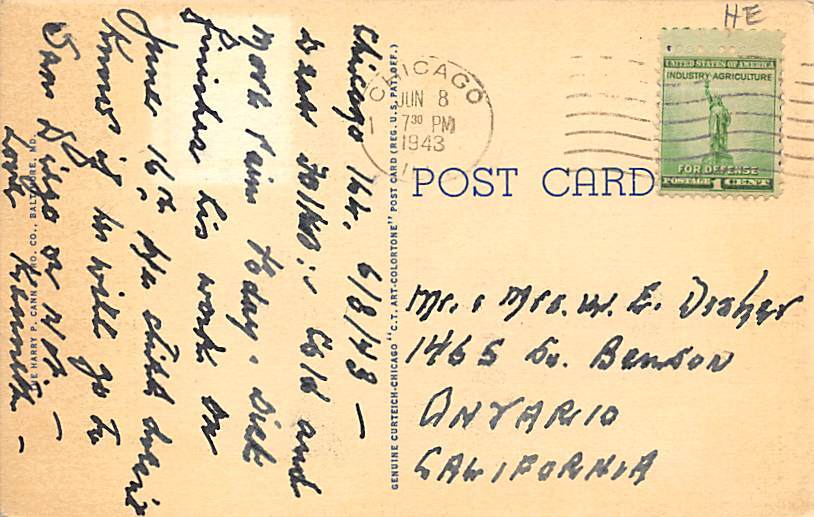 HE
CHICAGO
JUN 8
7 30 PM
1943
UNITED STATES OF AMERICA
INDUSTRY AGRICULTURE
FOR DEFENSE
POSTAGE 1 CENT
POST CARD
Mr. & Mrs. W. E.
1465 So. Benson
ONTARIO
CALIFORNIA
Chicago Ill. 6/8/43 —
Dear Folks:- Cold and
more rain today. Dick
finishes his work on
June 16th. He still doesn't
know if he will go to
San Diego or not —
Love Kenneth —
GENUINE CURTEICH-CHICAGO "C.T. ART-COLORTONE" POST CARD (REG. U.S. PAT. OFF.)
HARRY P. CANN & BRO. CO., BALTIMORE, MD.